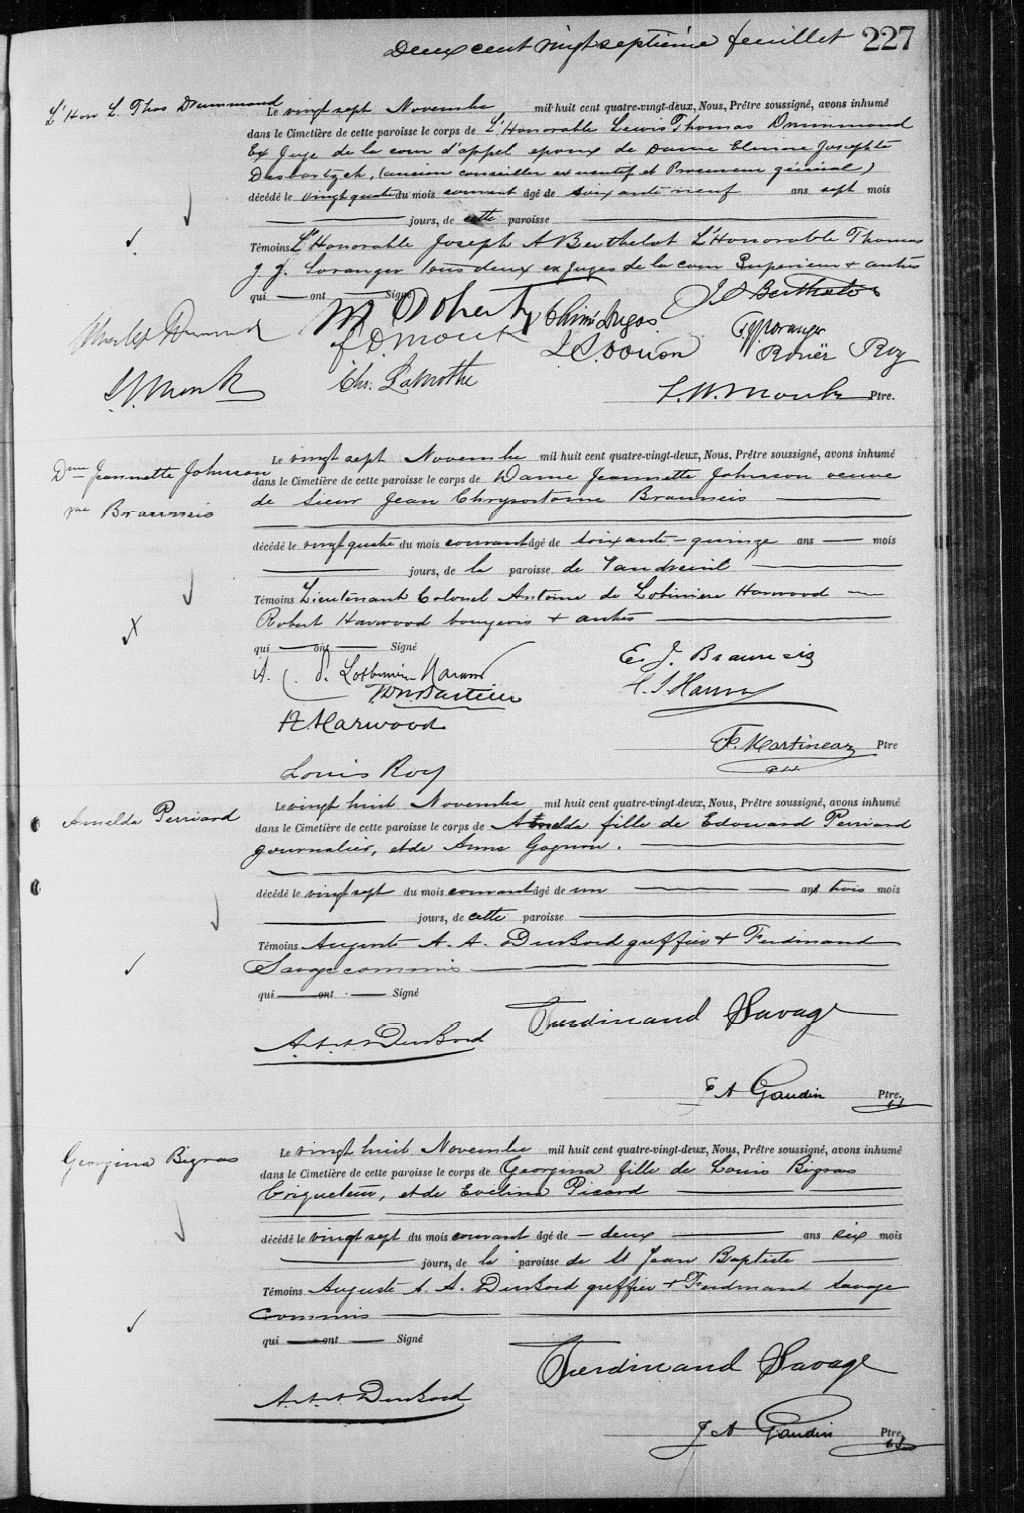 Deux cent vingt septième feuillet 227
L'Hon L. Thos Drummond
Le vingt sept Novembre mil huit cent quatre-vingt-deux, Nous, Prêtre soussigné, avons inhumé
dans le Cimetière de cette paroisse le corps de L'Honorable Lewis Thomas Drummond
Ex Juge de la cour d'appel epoux de Dame Elmire Josephte
Debartzch, (ancien conseiller executif et Procureur général)
décédé le vingt quatre du mois courant âgé de soixante neuf ans sept mois
jours, de cette paroisse
Témoins L'Honorable Joseph A Berthelot L'Honorable Thomas
J. J. Loranger tous deux ex juges de la cour Superieur + autres
qui ont Signé
M Doherty
J A Berthelot
Charles Drummond
F D. Monk
L.O. Doirion
Rouër Roy
Chs. Lamothe
F. W. Monk Ptre.
Dme Jeannette Johnson
Brauneis
Le vingt sept Novembre mil huit cent quatre-vingt-deux, Nous, Prêtre soussigné, avons inhumé
dans le Cimetière de cette paroisse le corps de Dame Jeannette Johnson veuve
de Sieur Jean Chrysostome Brauneis
décédé le vingt quatre du mois courant âgé de soixante-quinze ans mois
jours, de la paroisse de Vaudreuil
Témoins Lieutenant Colonel Antoine de Lotbiniere Harwood
Robert Harwood bourgeois + autres
qui ont Signé
E. J. Brauneis
A. C. d. Lotbinière Harwood
R. Harwood
F. Martineau Ptre
Louis Roy
Amelda Perrivard
Le vingt huit Novembre mil huit cent quatre-vingt-deux, Nous, Prêtre soussigné, avons inhumé
dans le Cimetière de cette paroisse le corps de Amelda fille de Edouard Perrivard
journalier, et de Anne Gagnon.
décédé le vingt sept du mois courant âgé de un ans trois mois
jours, de cette paroisse
Témoins Auguste A. A. DuBord greffier + Ferdinand
Savage commis
qui ont Signé
Ferdinand Savage
A. A. A. DuBord
J A Gaudin Ptre. SS
Georgina Bigras
Le vingt huit Novembre mil huit cent quatre-vingt-deux, Nous, Prêtre soussigné, avons inhumé
dans le Cimetière de cette paroisse le corps de Georgina fille de Louis Bigras
briqueteur, et de Evelina Picard
décédé le vingt sept du mois courant âgé de deux ans six mois
jours, de la paroisse de St Jean Baptiste
Témoins Auguste A. A. DuBord greffier + Ferdinand Savage
commis
qui ont Signé
Ferdinand Savage
A. A. A. DuBord
J A Gaudin Ptre. SS